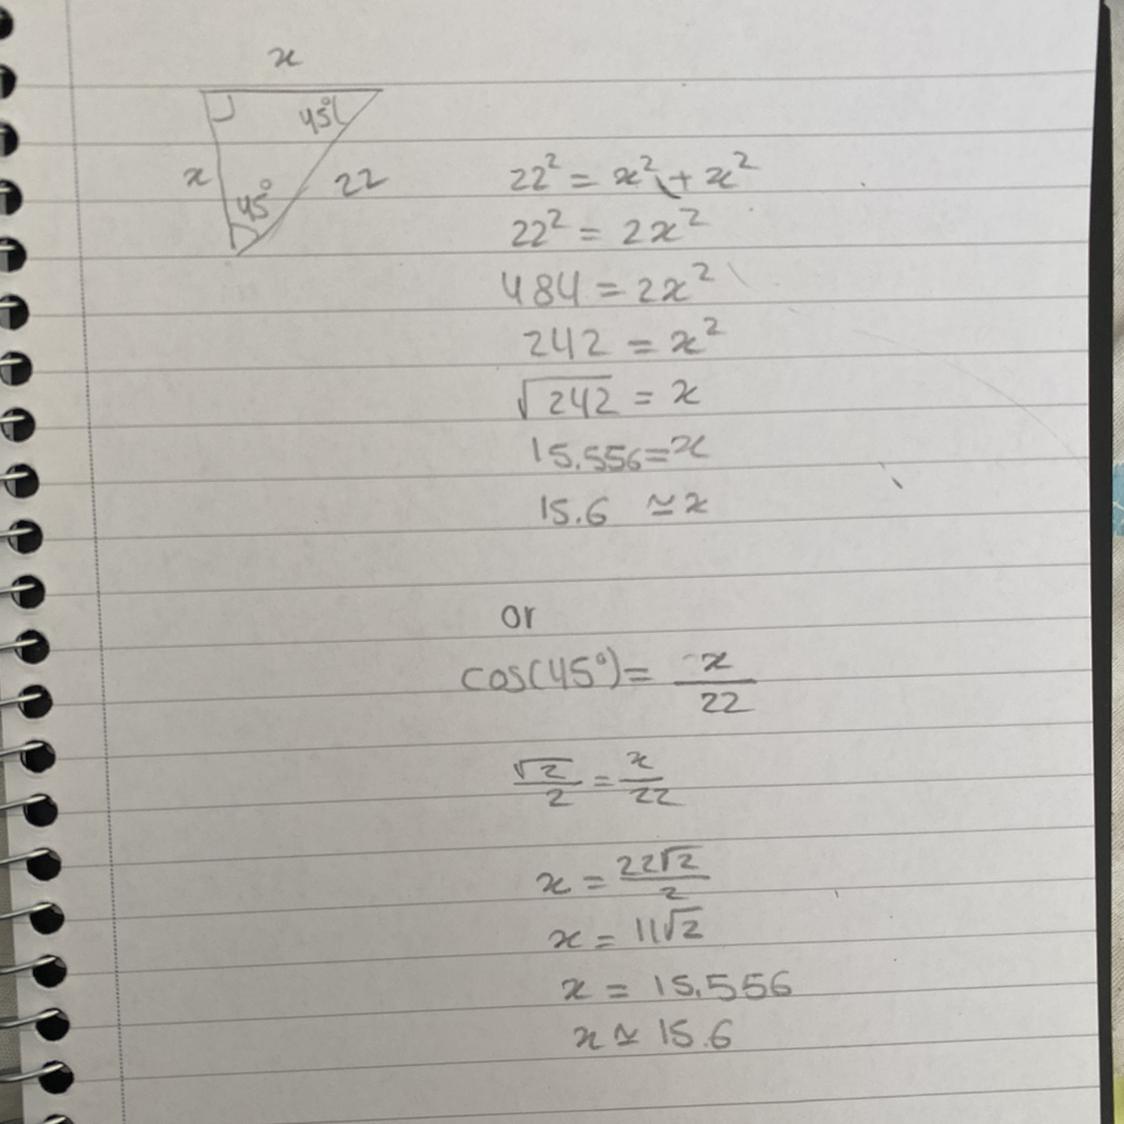 x
45°
x
22
45°
22² = x² + x²
22² = 2x²
484 = 2x²
242 = x²
√242 = x
15.556 = x
15.6 ≃ x
or
cos(45°) = x/22
√2/2 = x/22
x = 22√2/2
x = 11√2
x = 15.556
x ≃ 15.6